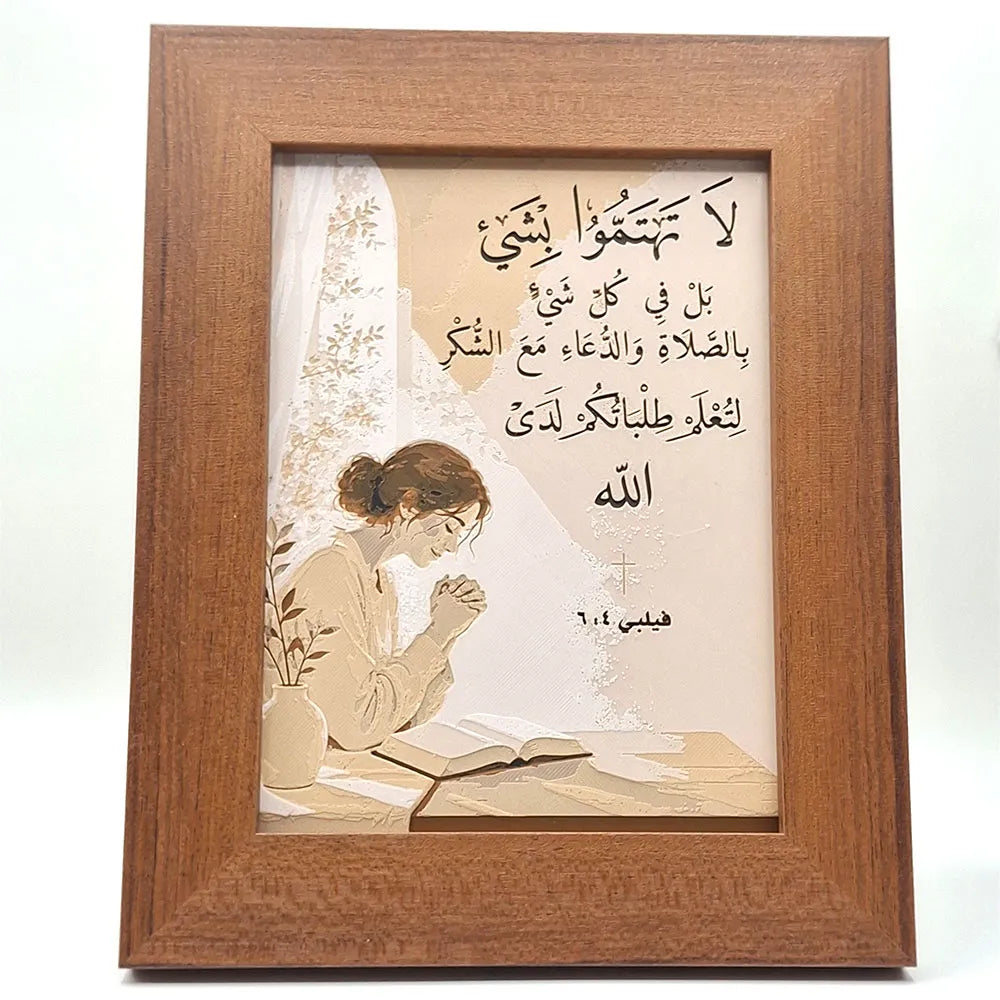 لَا تَهَتَمُّوُا بِشَيْءٍ
بَلْ فِي كُلِّ شَيْءٍ
بِالصَّلَاةِ وَالدُّعَاءِ مَعَ الشُّكْرِ
لِتُعْلَمْ طِلْبَاتُكُمْ لَدَى
اللّٰه
فيلبي ٤: ٦